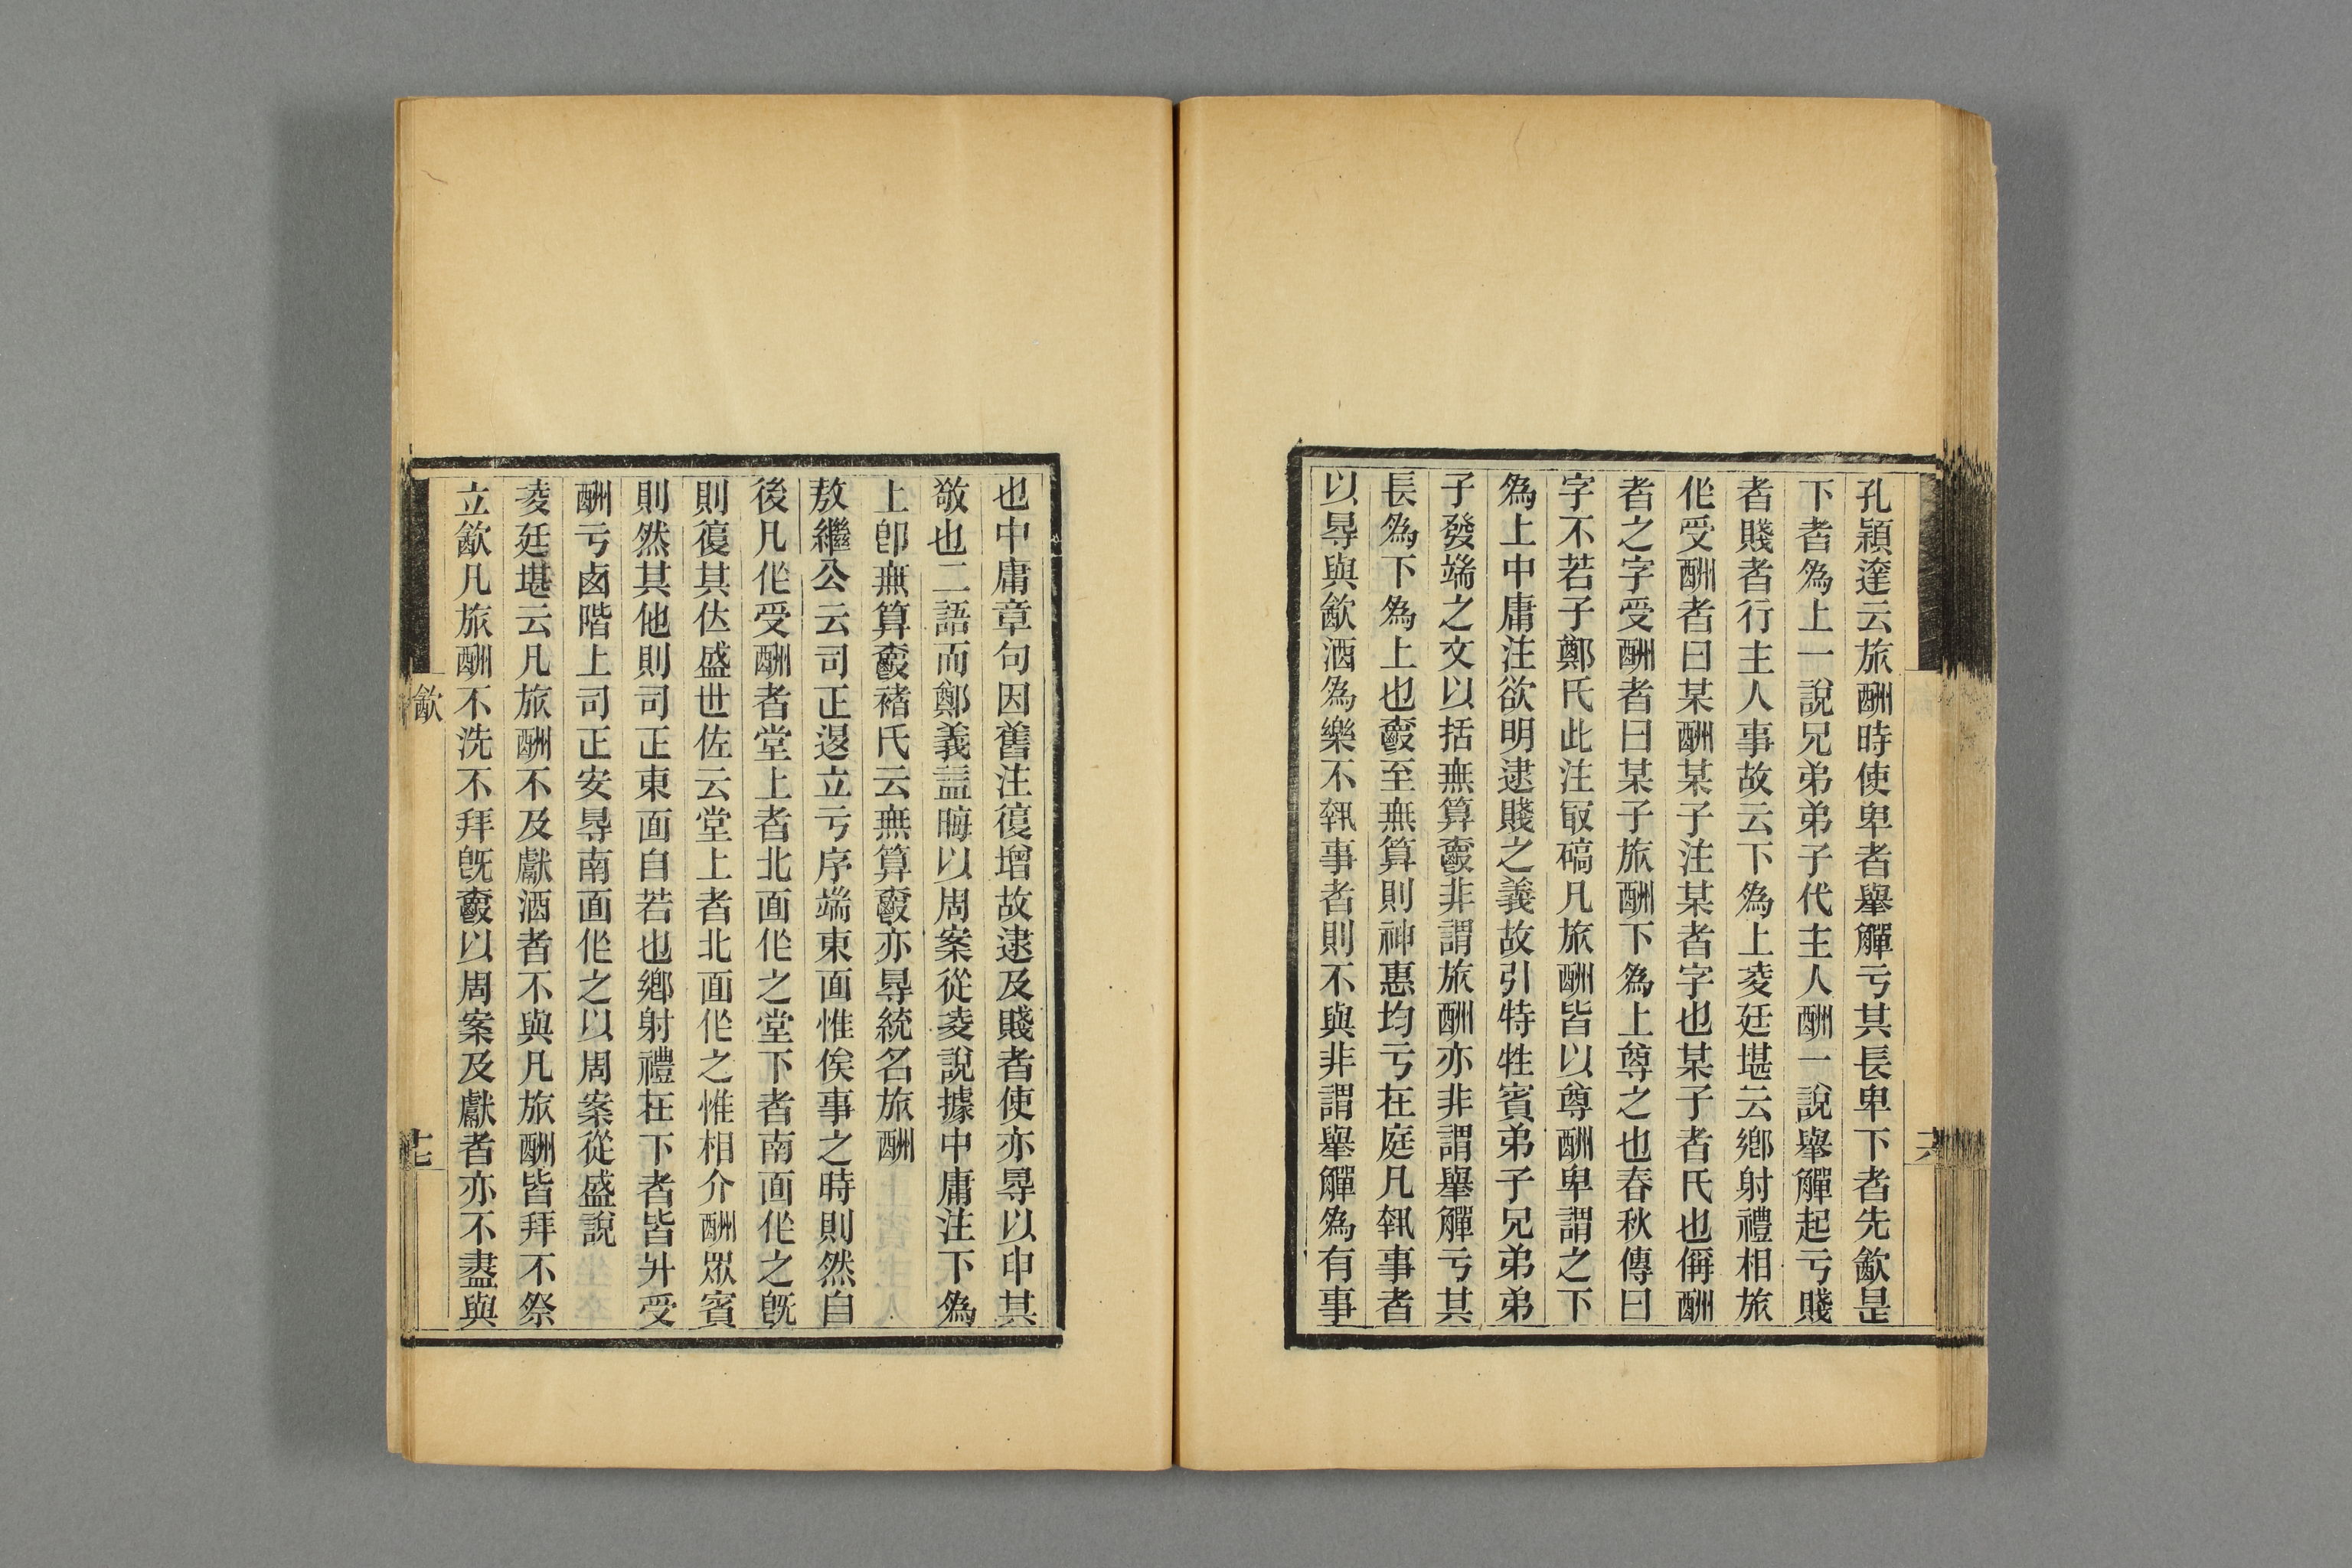 孔穎達云旅酬時使卑者舉觶亏其長卑下者先㱃是
下者為上一說兄弟弟子代主人酬一說舉觶起亏賤
者賤者行主人事故云下為上夌廷堪云鄉射禮相旅
㘴受酬者曰某酬某子注某者字也某子者氏也偁酬
者之字受酬者曰某子旅酬下為上尊之也春秋傳曰
字不若子鄭氏此注㝡碻凡旅酬皆以尊酬卑謂之下
為上中庸注欲明逮賤之義故引特牲賓弟子兄弟弟
子發端之文以括無算爵非謂旅酬亦非謂舉觶亏其
長為下為上也爵至無算則神惠均亏在庭凡執事者
以㝵與㱃酒為樂不執事者則不與非謂舉觶為有事
也中庸章句因舊注復增故逮及賤者使亦㝵以申其
敬也二語而鄭義盇晦以周案從夌說據中庸注下為
上卽無算爵褚氏云無算爵亦㝵統名旅酬
敖繼公云司正退立亏序端東面惟俟事之時則然自
後凡㘴受酬者堂上者北面㘴之堂下者南面㘴之旣
則復其位盛世佐云堂上者北面㘴之惟相介酬眾賓
則然其他則司正東面自若也鄉射禮在下者皆升受
酬亏卥階上司正安㝵南面㘴之以周案從盛說
夌廷堪云凡旅酬不及獻酒者不與凡旅酬皆拜不祭
立㱃凡旅酬不洗不拜旣爵以周案及獻者亦不盡與
㱃
十七